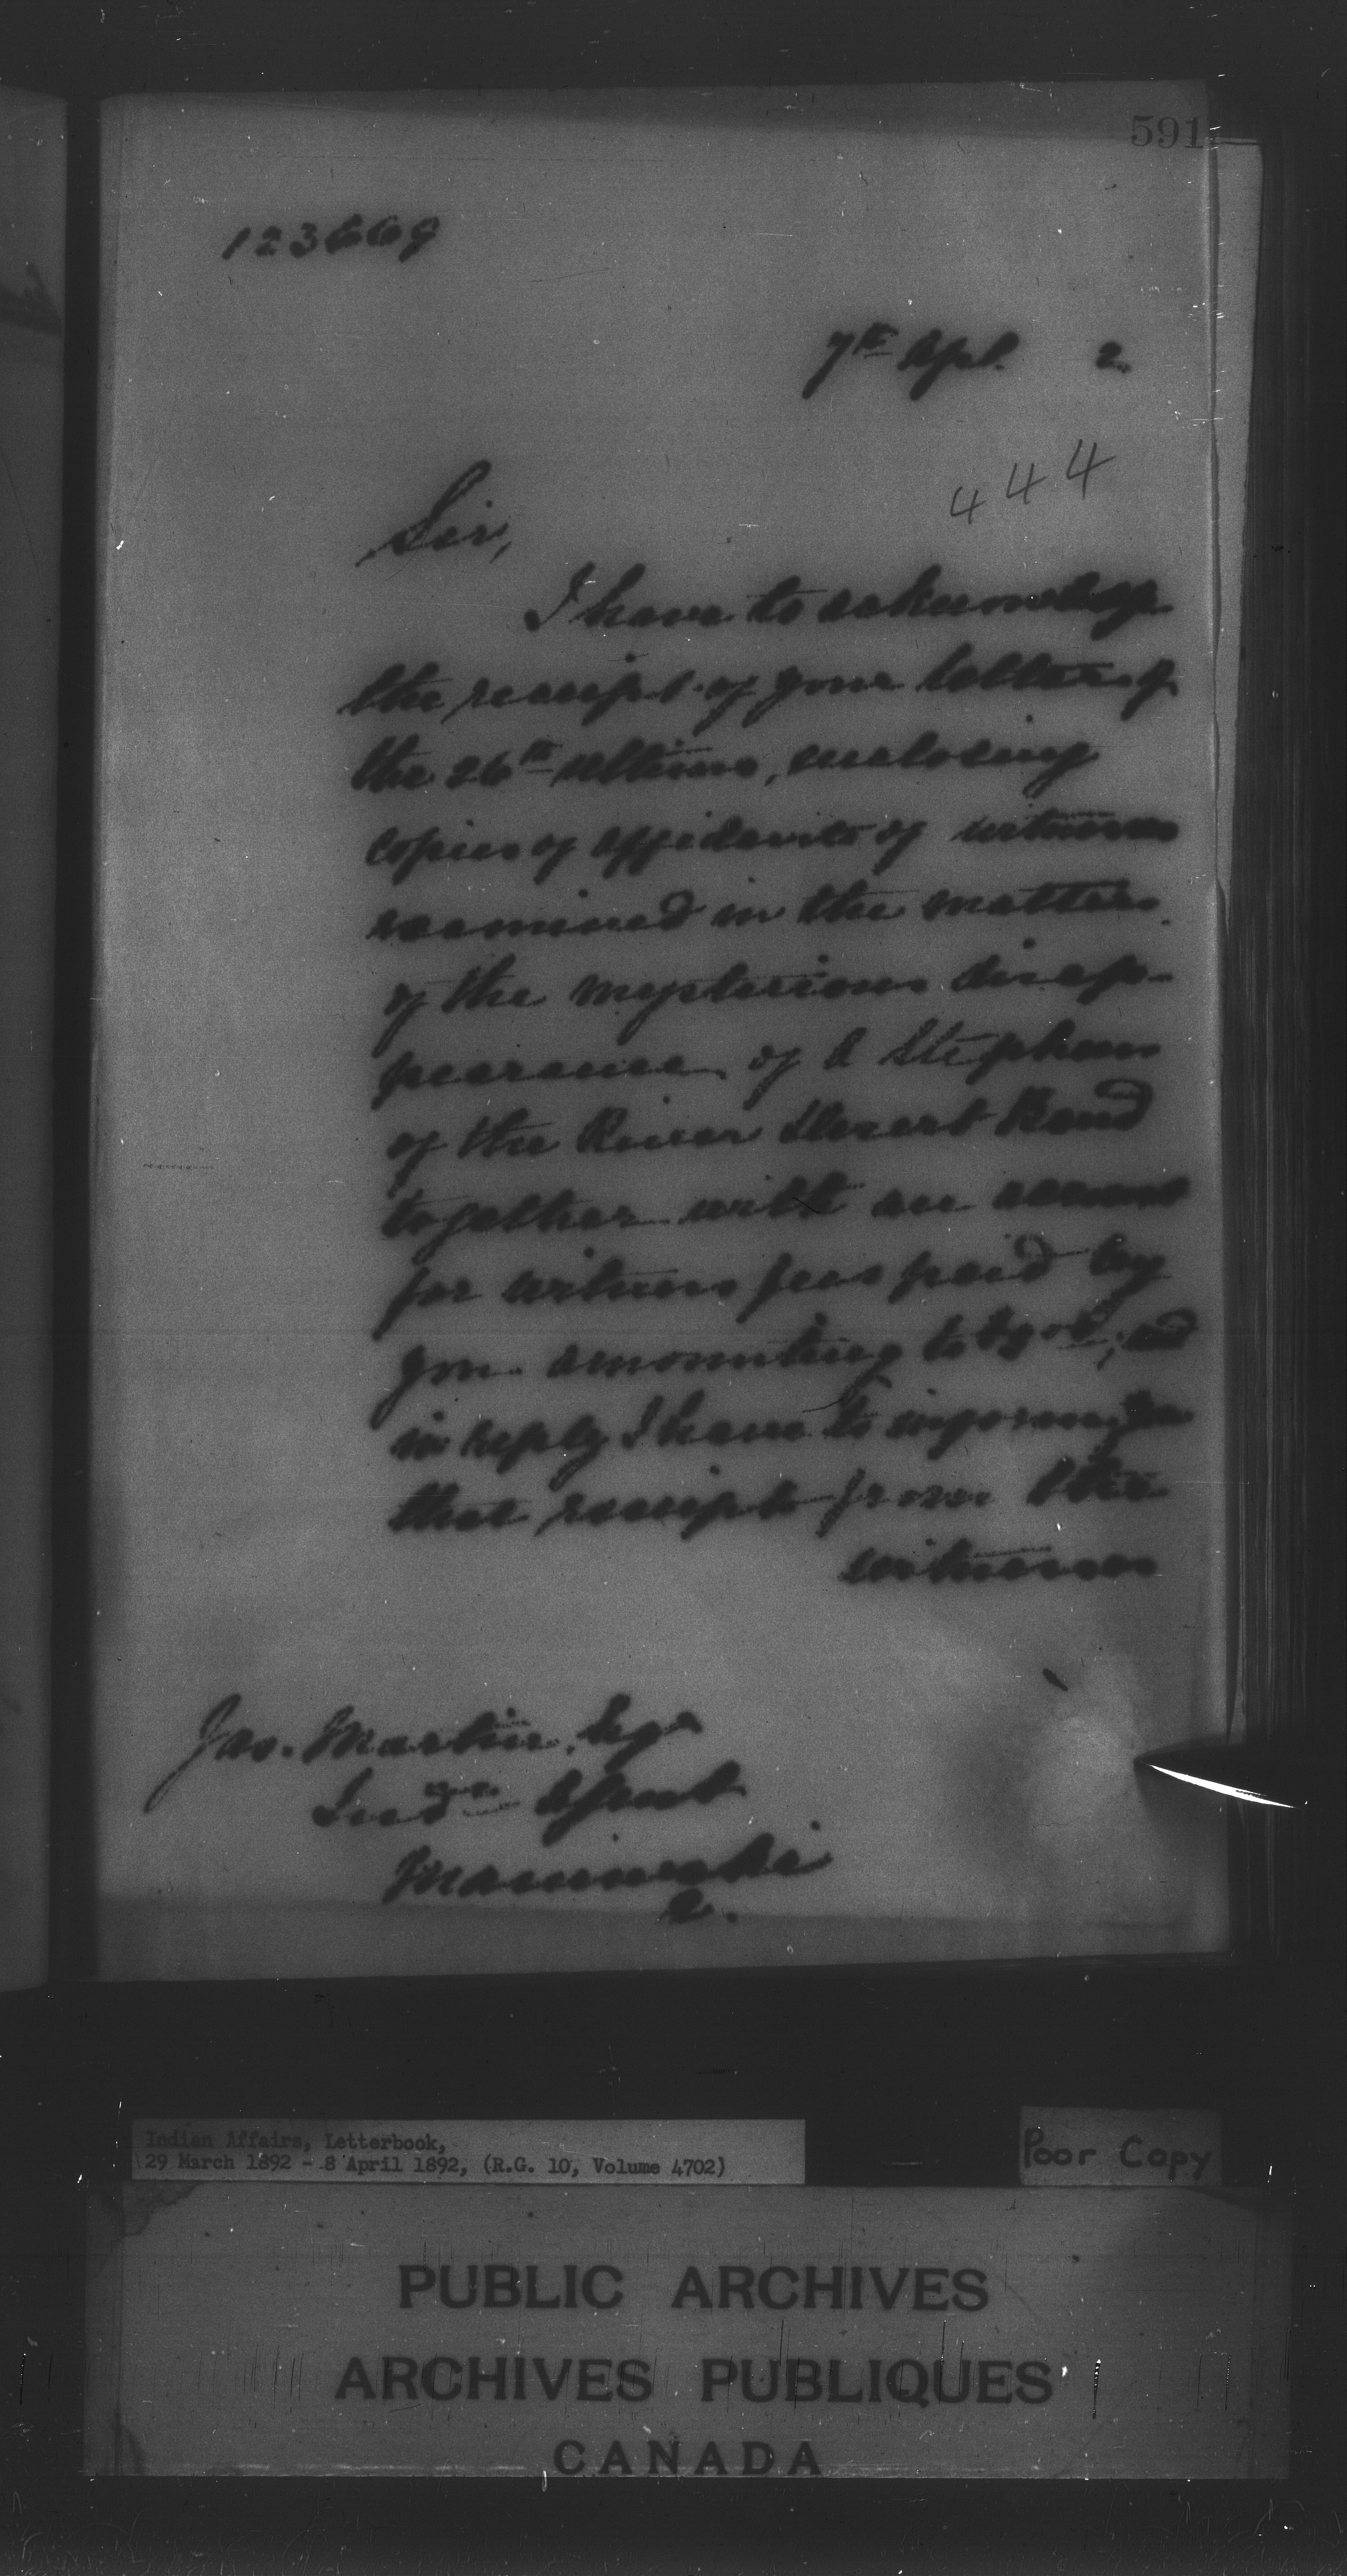 591
123669
7th Apl. 2.
444
Sir,
I have to acknowledge
the receipt of your letter of
the 26th ultimo, enclosing
copies of affidavits of witnesses
examined in the matter
of the mysterious disap-
pearance of Stephens
of the River Desert Band
together with an account
for witness fees paid by
you amounting to and
in reply I have to inform you
that receipts from the
witnesses
Jas. Martin, Esqr
Indn Agent
Maniwaki
Q.
Indian Affairs, Letterbook,
29 March 1892 - 8 April 1892, (R.G. 10, Volume 4702)
Poor Copy
PUBLIC ARCHIVES
ARCHIVES PUBLIQUES
CANADA